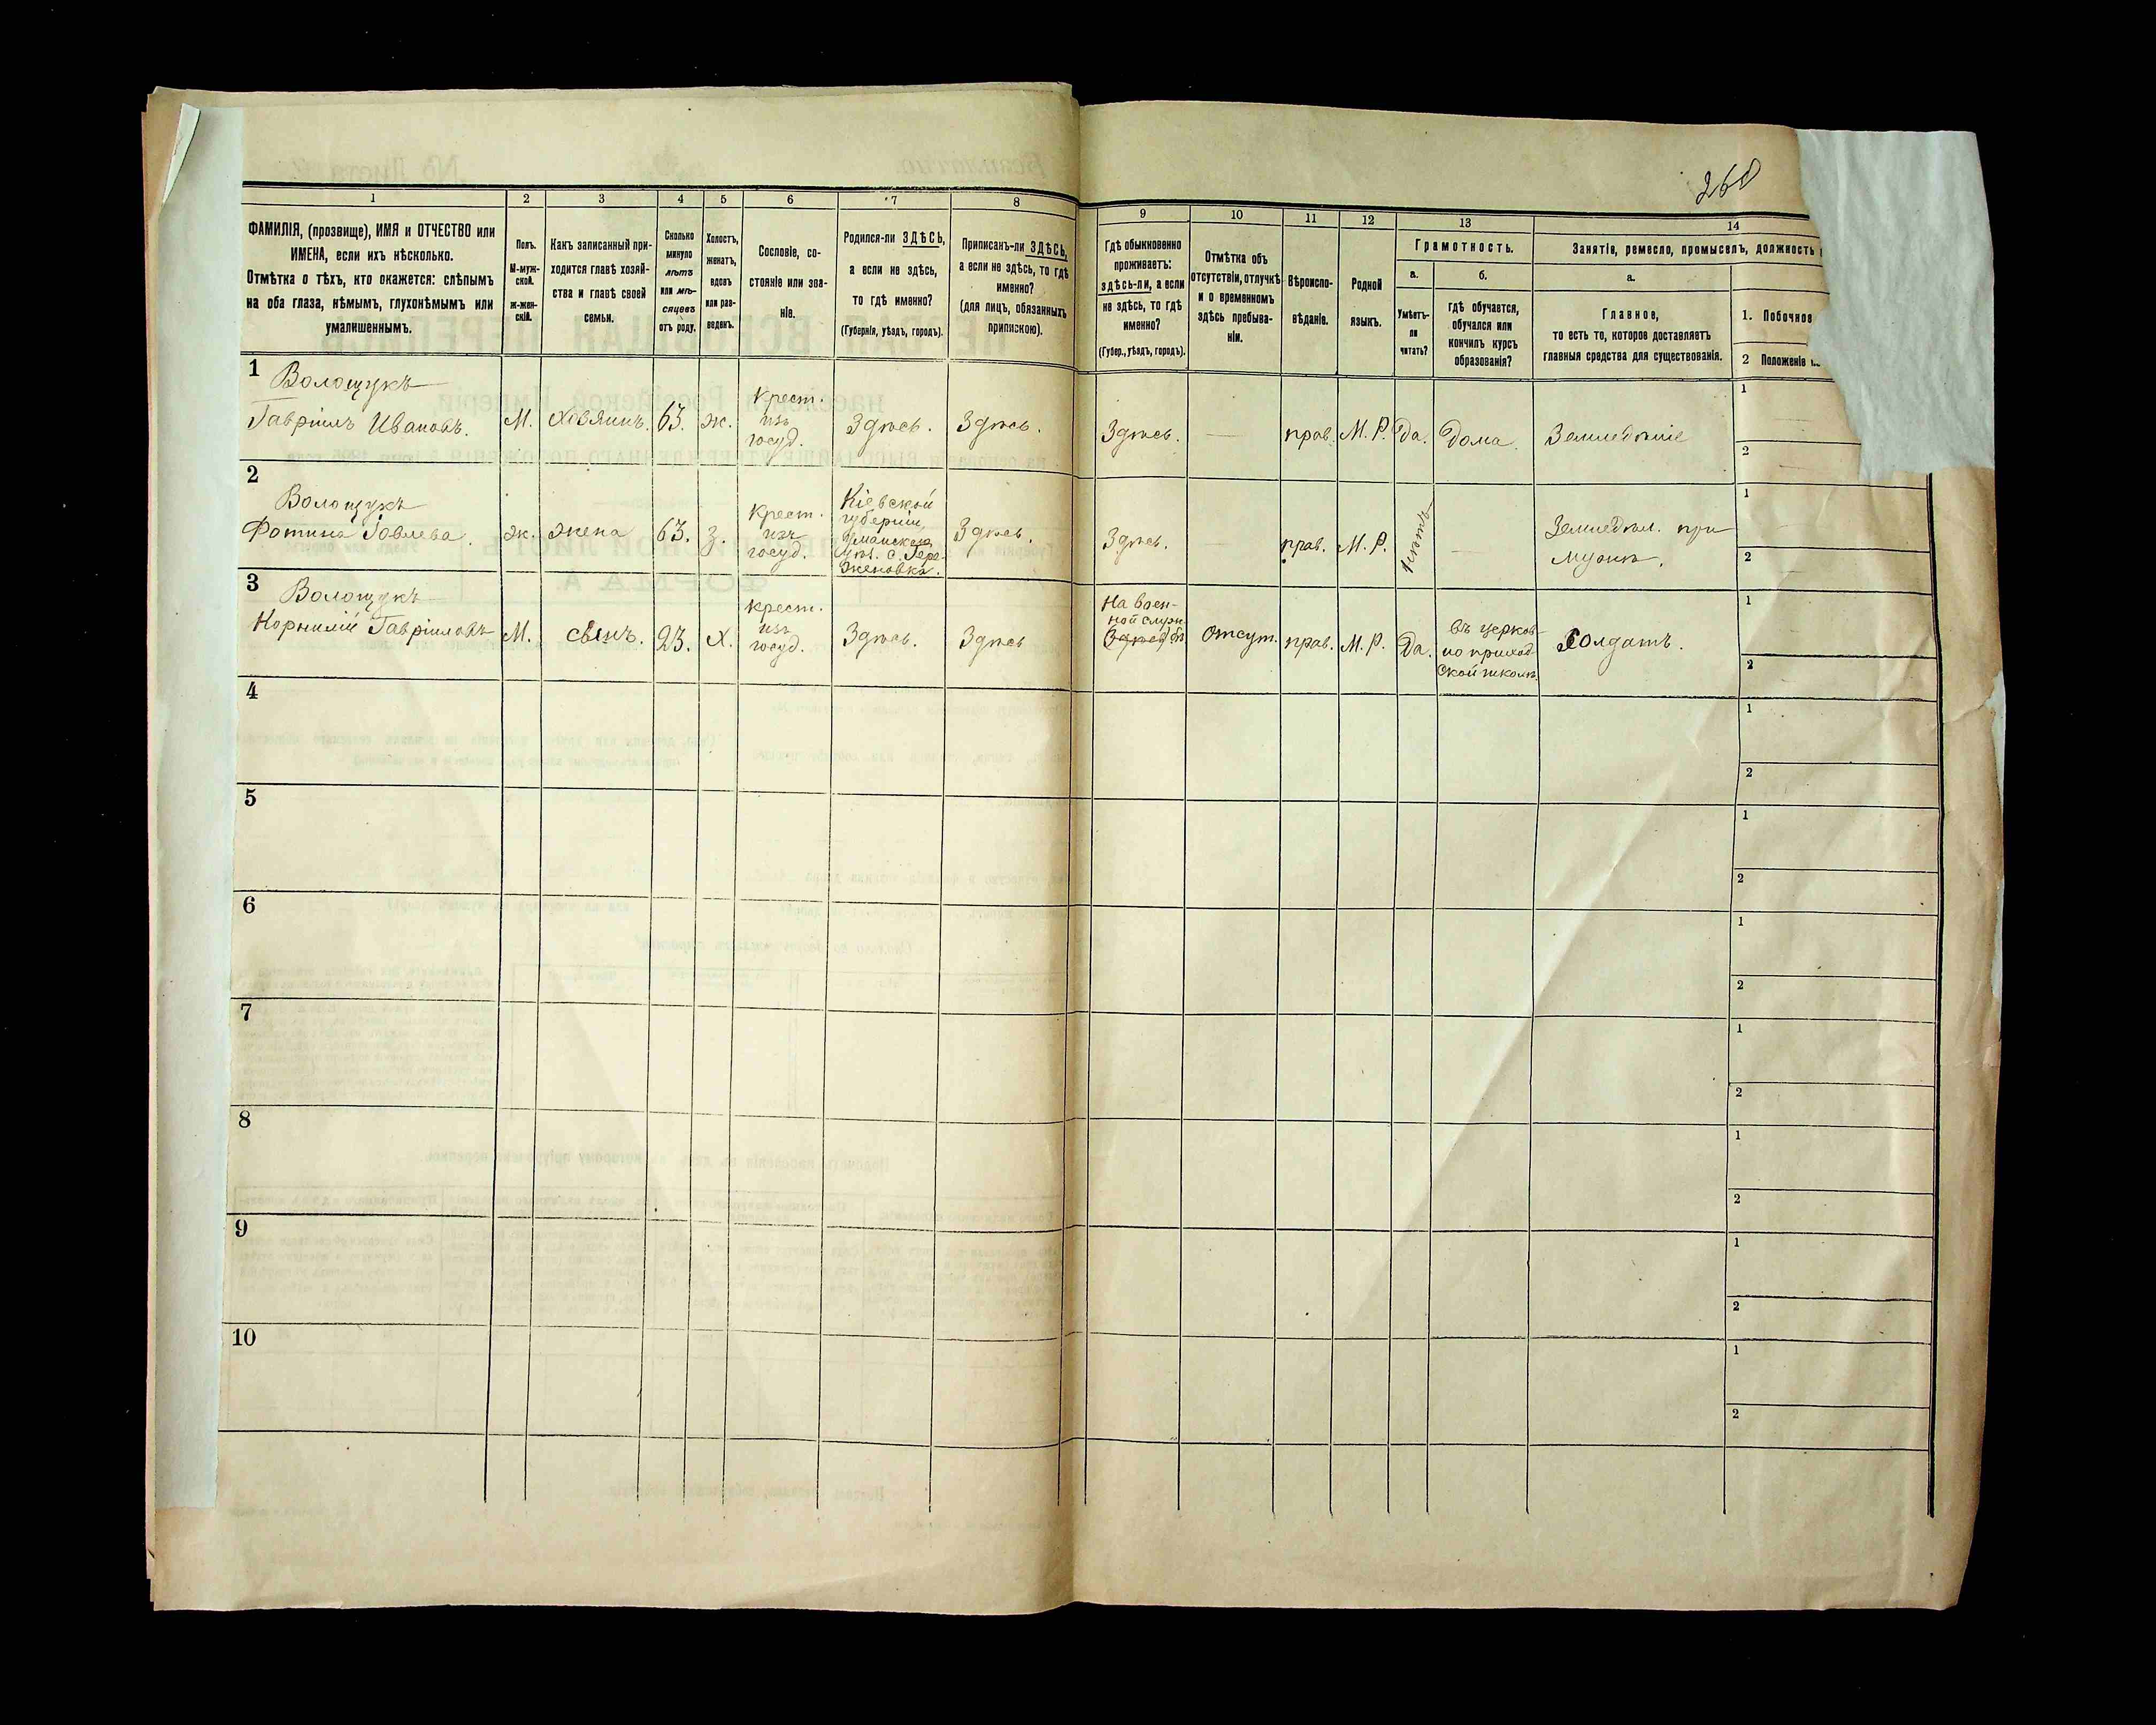 260
1
2
3
4
5
6
7
8
9
10
11
12
13
14
ФАМИЛІЯ, (прозвище), ИМЯ и ОТЧЕСТВО или
ИМЕНА, если ихъ нѣсколько.
Отмѣтка о тѣхъ, кто окажется: слѣпымъ
на оба глаза, нѣмымъ, глухонѣмымъ или
умалишеннымъ.
Полъ.
М-муж-
ской.
Ж-жен-
скій.
Какъ записанный при-
ходится главѣ хозяй-
ства и главѣ своей
семьи.
Сколько
минуло
лѣтъ
или мѣ-
сяцевъ
отъ роду.
Холостъ,
женатъ,
вдовъ
или раз-
веденъ.
Сословіе, со-
стояніе или зва-
ніе.
Родился-ли ЗДѢСЬ,
а если не здѣсь,
то гдѣ именно?
(Губернія, уѣздъ, городъ).
Приписанъ-ли ЗДѢСЬ,
а если не здѣсь, то гдѣ
именно?
(для лицъ, обязанныхъ
припискою).
Гдѣ обыкновенно
проживаетъ:
здѣсь-ли, а если
не здѣсь, то гдѣ
именно?
(Губер., уѣздъ, городъ).
Отмѣтка объ
отсутствіи, отлучкѣ
и о временномъ
здѣсь пребыва-
ніи.
Вѣроиспо-
вѣданіе.
Родной
языкъ.
Грамотность.
а.
Умѣетъ-
ли
читать?
б.
гдѣ обучается,
обучался или
кончилъ курсъ
образованія?
Занятія, ремесло, промыселъ, должность
а.
Главное,
то есть то, которое доставляетъ
главныя средства для существованія.
1. Побочное
2 Положеніе
1
Волощукъ
Гавріилъ Ивановъ.
М.
Хозяинъ.
63.
ж.
Крест.
изъ
госуд.
Здѣсь.
Здѣсь.
Здѣсь.
—
прав.
М. Р.
Да.
Дома
Земледѣліе
1
2
2
Волощукъ
Фотина Іовлева.
ж.
жена
63.
з.
Крест.
изъ
госуд.
Кіевской
губерніи,
Уманскаго
уѣз. с.
Здѣсь.
Здѣсь.
прав.
М. Р.
Нѣтъ
—
Земледѣл. при
мужѣ.
1
2
3
Волощукъ
Корнилій Гавріиловъ
М.
сынъ.
23.
Х.
Крест.
изъ
госуд.
Здѣсь.
Здѣсь
На воен-
ной служ-
Здѣсь бѣ
Отсут.
прав.
М. Р.
Да.
въ церков-
но приход-
ской школѣ
Солдатъ.
1
2
4
1
2
5
1
2
6
1
2
7
1
2
8
1
2
9
1
2
10
1
2